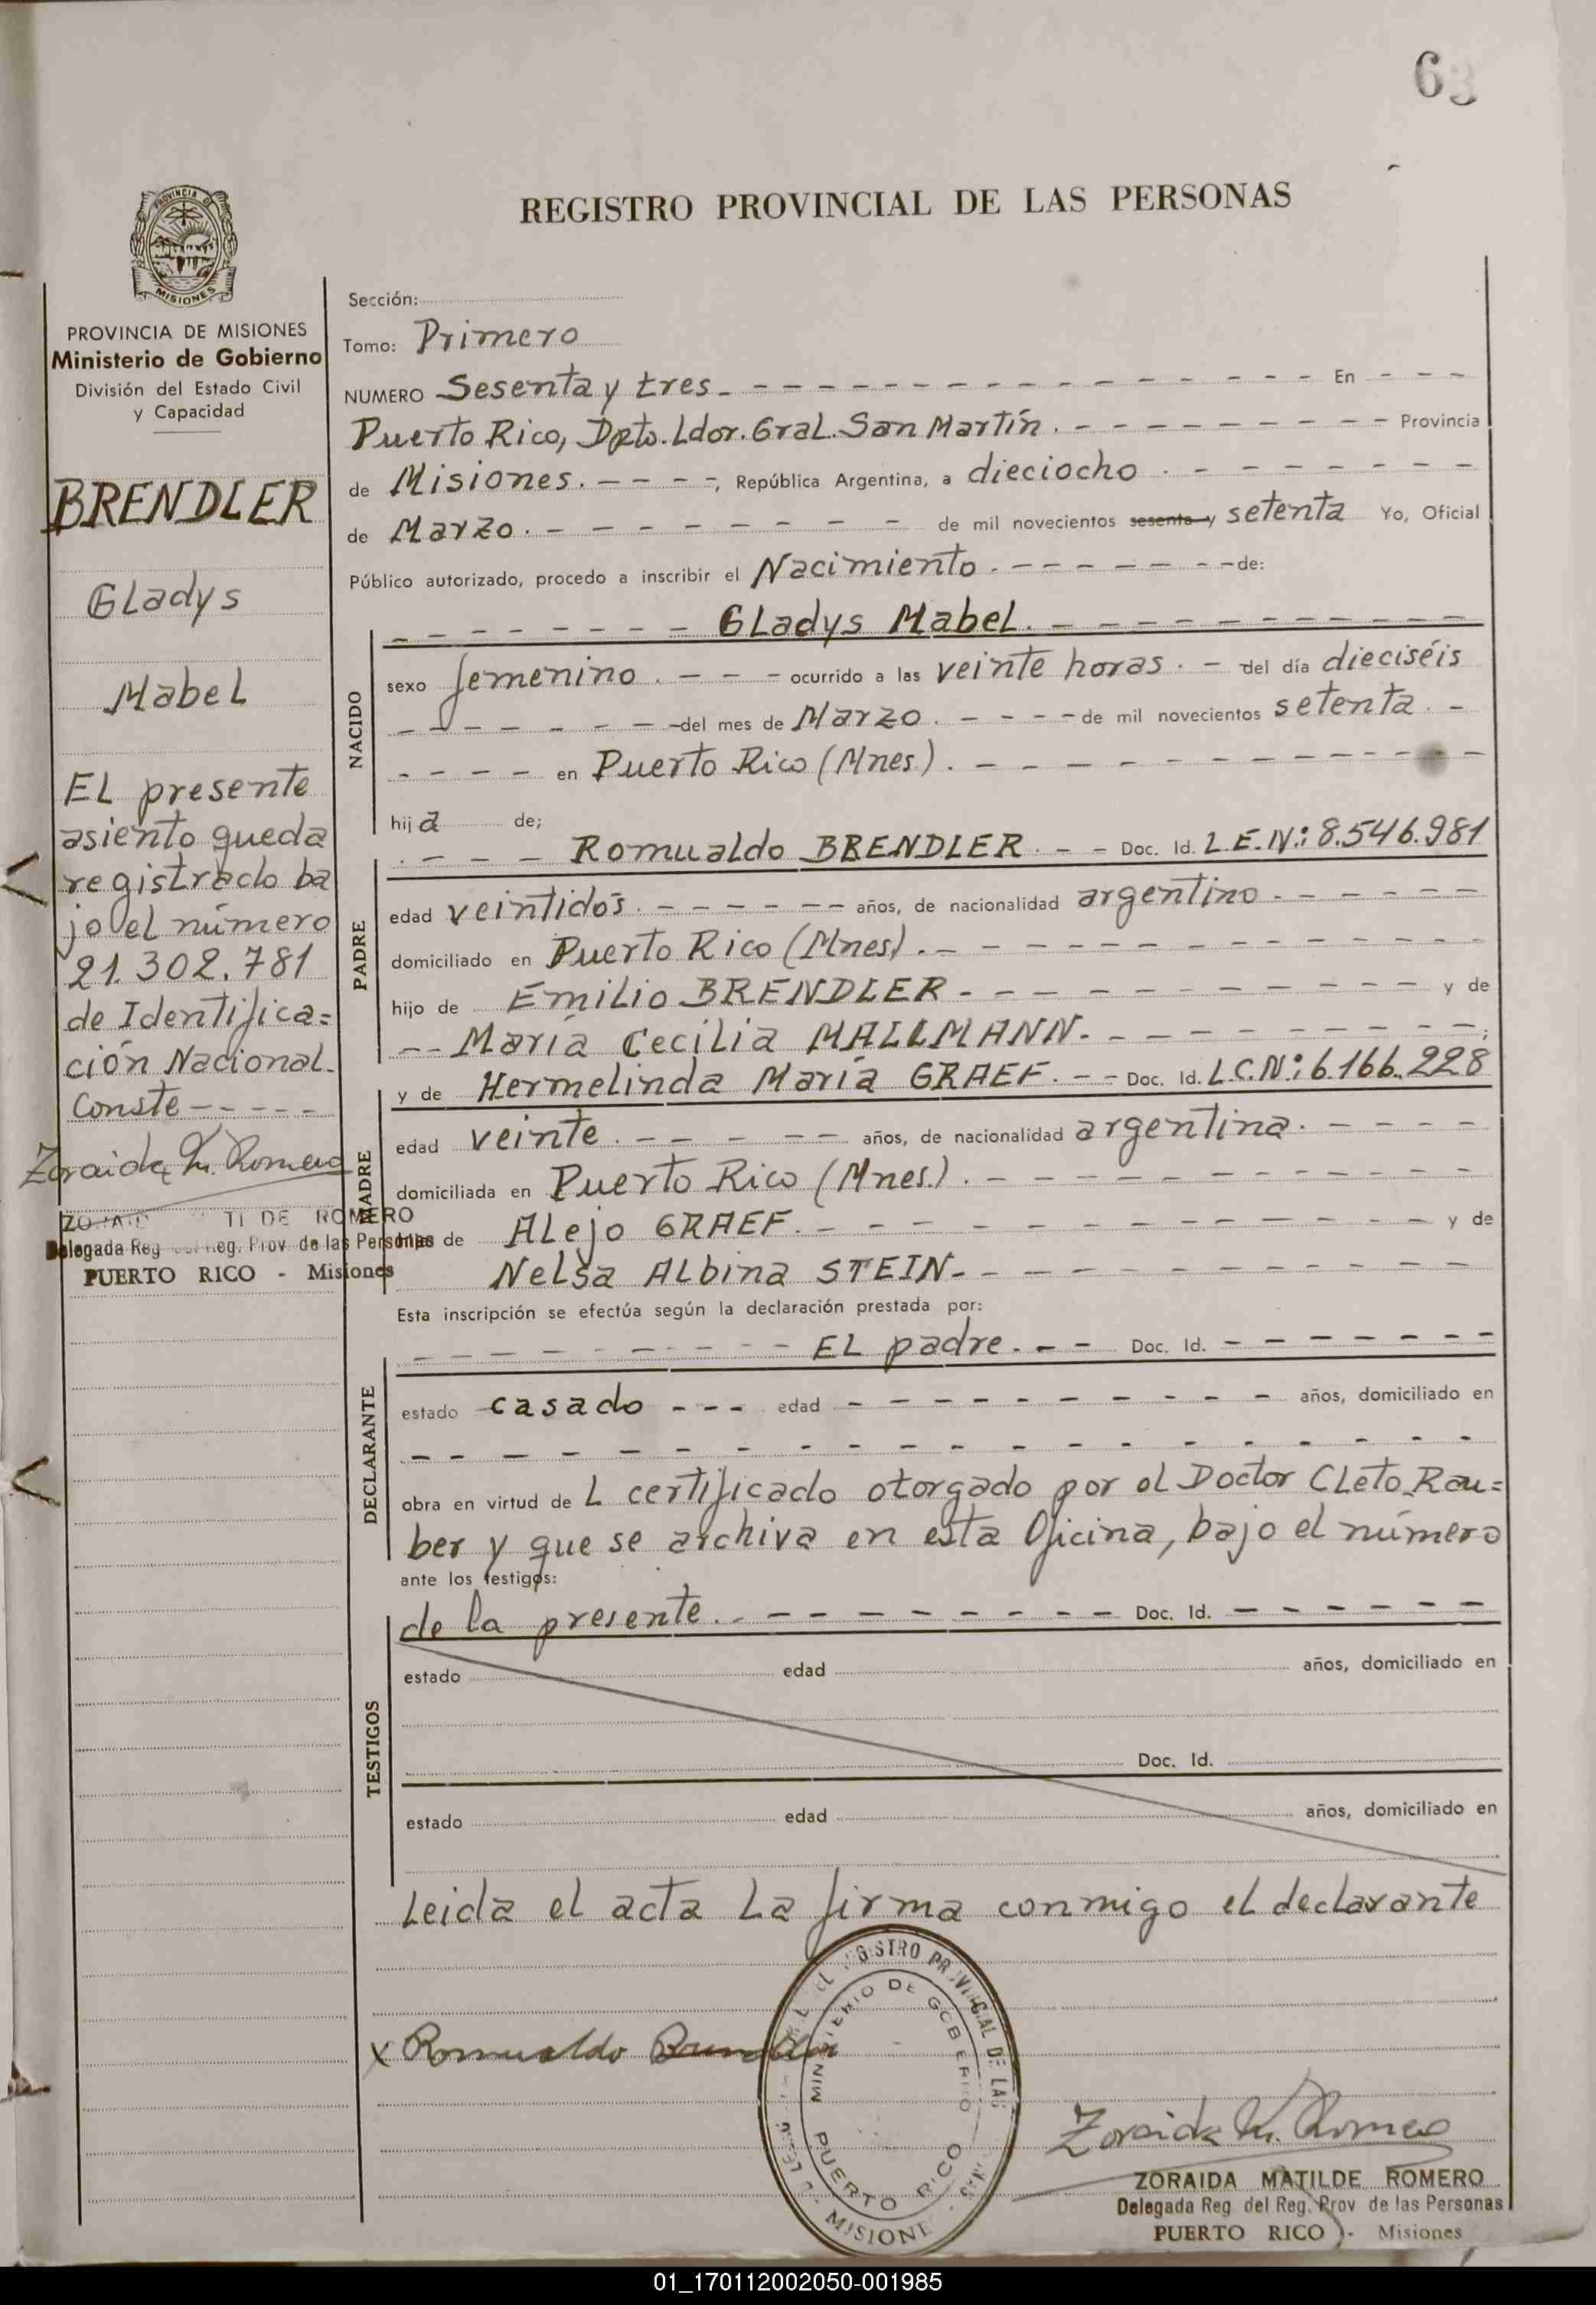 63
REGISTRO PROVINCIAL DE LAS PERSONAS
PROVINCIA DE MISIONES
Ministerio de Gobierno
División del Estado Civil
y Capacidad
BRENDLER
Gladys
Mabel
El presente
asiento queda
registrado ba
jo el número
21.302.781
de Identifica=
ción Nacional.
Conste-----
Zoraida M. Romero
TI DE ROMERO
Delegada Reg. del Reg. Prov. de las Personas
PUERTO RICO - Misiones
Sección:
Tomo: Primero
NUMERO Sesenta y tres.- En ---
Puerto Rico, Dpto. Ldor. Gral. San Martín.- Provincia
de Misiones.----, República Argentina, a dieciocho.-
de Marzo.- de mil novecientos sesenta y setenta Yo, Oficial
Público autorizado, procedo a inscribir el Nacimiento.- de:
Gladys Mabel.-
NACIDO
sexo femenino.--- ocurrido a las veinte horas.- del día dieciséis
- del mes de Marzo.- de mil novecientos setenta.-
---- en Puerto Rico (Mnes).-
hija de;
PADRE
.--- Romualdo BRENDLER.-- Doc. Id. L.E.N: 8.546.981
edad veintidós.- años, de nacionalidad argentino.-
domiciliado en Puerto Rico (Mnes).-
hijo de Emilio BRENDLER.- y de
-- María Cecilia MALLMANN.- ;
MADRE
y de Hermelinda María GRAEF.-- Doc. Id. L.C.N: 6.166.228
edad veinte.- años, de nacionalidad argentina.-
domiciliada en Puerto Rico (Mnes.).-
hija de Alejo GRAEF.- y de
Nelsa Albina STEIN.-
Esta inscripción se efectúa según la declaración prestada por:
DECLARANTE
El padre.-- Doc. Id. -------
estado casado --- edad --------- años, domiciliado en
obra en virtud de l certificado otorgado por el Doctor Cleto Rau=
ber y que se archiva en esta Oficina, bajo el número
ante los testigos:
de la presente.- Doc. Id. ------
TESTIGOS
estado edad años, domiciliado en
Doc. Id.
estado edad años, domiciliado en
Leida el acta la firma conmigo el declarante
x Romualdo Brendler
REGISTRO PROVINCIAL DE LAS
MINISTERIO DE GOBIERNO
PUERTO RICO
MISIONES
Zoraida M. Romero
ZORAIDA MATILDE ROMERO
Delegada Reg. del Reg. Prov de las Personas
PUERTO RICO - Misiones
01_170112002050-001985